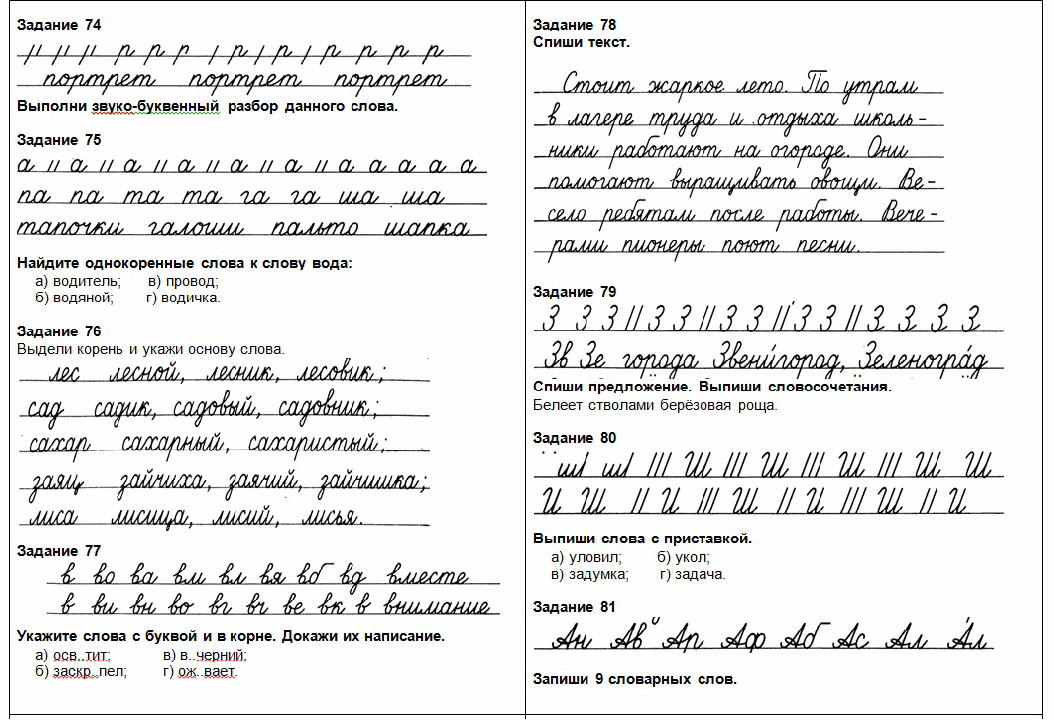 Задание 74
р р р р р р р р р
портрет портрет портрет
Выполни звуко-буквенный разбор данного слова.
Задание 75
а а а а а а а а а а
па па та та га га ша ша
тапочки галоши пальто шапка
Найдите однокоренные слова к слову вода:
а) водитель; в) провод;
б) водяной; г) водичка.
Задание 76
Выдели корень и укажи основу слова.
лес лесной, лесник, лесовик;
сад садик, садовый, садовник;
сахар сахарный, сахаристый;
заяц зайчиха, заячий, зайчишка;
лиса лисица, лисий, лисья.
Задание 77
в во ва вм вл вя вб вд вместе
в ви вн во вг вч ве вк в внимание
Укажите слова с буквой и в корне. Докажи их написание.
а) осв..тит; в) в..черний;
б) заскр..пел; г) ож..вает.
Задание 78
Спиши текст.
Стоит жаркое лето. По утрам
в лагере труда и отдыха школь-
ники работают на огороде. Они
помогают выращивать овощи. Ве-
село ребятам после работы. Вече-
рами пионеры поют песни.
Задание 79
З З З З З З З З З З З
Зв Зе города Звенигород, Зеленоград
Спиши предложение. Выпиши словосочетания.
Белеет стволами берёзовая роща.
Задание 80
ш ш Ш Ш Ш Ш Ш
И Ш И Ш И Ш И
Выпиши слова с приставкой.
а) уловил; б) укол;
в) задумка; г) задача.
Задание 81
Ан Ав Ар Аф Аб Ас Ал Ал
Запиши 9 словарных слов.